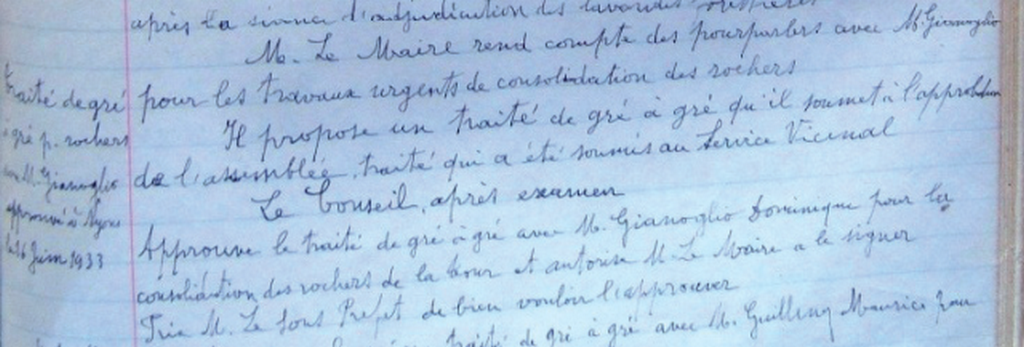 après la séance d'adjudication des lavandes
M. Le Maire rend compte des pourparlers avec M. Gianoglio
pour les travaux urgents de consolidation des rochers
Il propose un traité de gré à gré qu'il soumet à l'approbation
de l'assemblée, traité qui a été soumis au Service Vicinal
Le Conseil, après examen
Approuve le traité de gré à gré avec M. Gianoglio Dominique pour la
consolidation des rochers de la tour et autorise M. Le Maire a le signer
Prie M. Le Sous Préfet de bien vouloir l'approuver
traité de gré à gré avec M. Maurice pour
traité de gré
à gré p. rochers
M. Gianoglio
approuvé à Nyons
le 16 Juin 1933